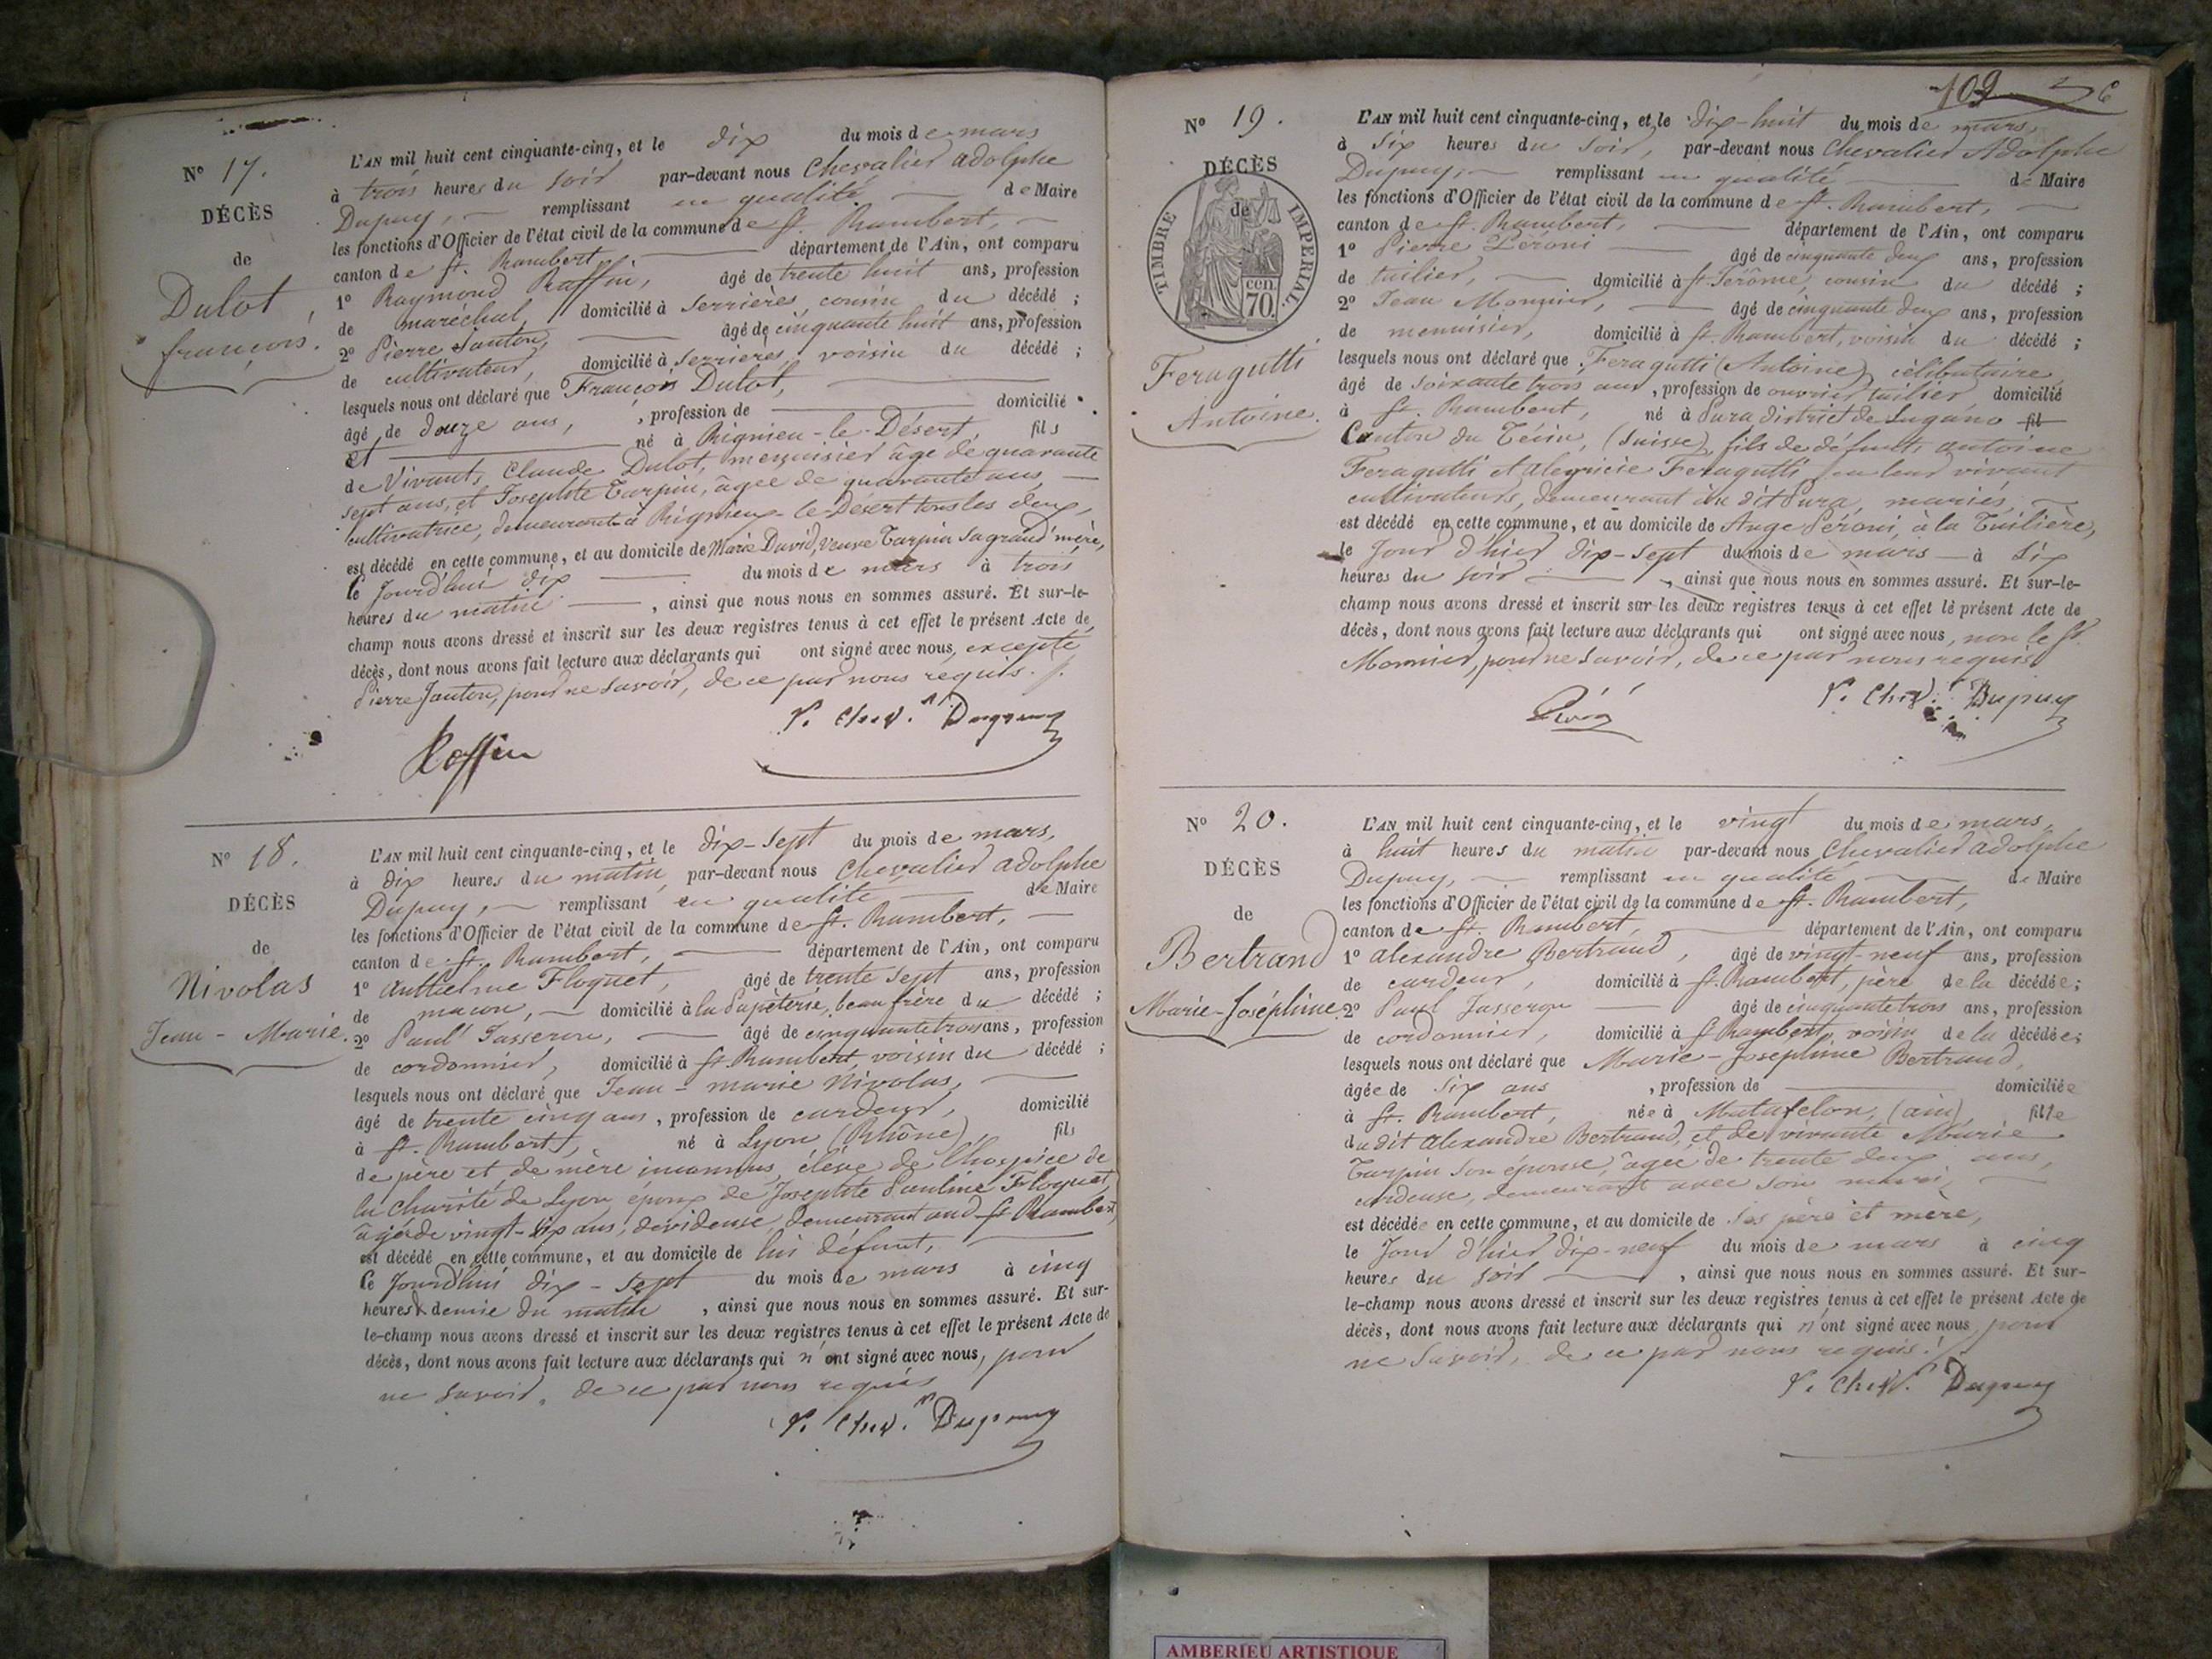 Nº 17.
DÉCÈS
de
Dulot,
françois.
L'AN mil huit cent cinquante-cinq, et le dix du mois de mars
à trois heures du soir par-devant nous Chevalier Adolphe
Dupuy, remplissant en qualité de Maire
les fonctions d'Officier de l'état civil de la commune de St. Rambert,
canton de St. Rambert, département de l'Ain, ont comparu
1º Raymond Roffin, âgé de trente huit ans, profession
de marechal, domicilié à Serrières, cousin du décédé ;
2º Pierre Janton, âgé de cinquante huit ans, profession
de cultivateur, domicilié à Serrières, voisin du décédé ;
lesquels nous ont déclaré que François Dulot,
âgé de douze ans, , profession de domicilié
et né à Rignieu-le-Désert, fils
de Vivants Claude Dulot, menuisier âgé de quarante
sept ans, et Josephte Tarpin, âgée de quarante ans,
cultivatrice, demeurant à Rignieu-le-Désert tous les deux,
est décédé en cette commune, et au domicile de Marie David, veuve Tarpin sa grand'mère,
le Jourd'hui dix du mois de mars à trois
heures du matin , ainsi que nous nous en sommes assuré. Et sur-le-
champ nous avons dressé et inscrit sur les deux registres tenus à cet effet le présent Acte de
décès, dont nous avons fait lecture aux déclarants qui ont signé avec nous, excepté
Pierre Janton, pour ne savoir, de ce par nous requis.
Roffin
Chev. Dupuy
Nº 18.
DÉCÈS
de
Nivolas
Jean - Marie.
L'AN mil huit cent cinquante-cinq, et le dix-sept du mois de mars,
à dix heures du matin, par-devant nous Chevalier Adolphe
Dupuy, remplissant en qualité de Maire
les fonctions d'Officier de l'état civil de la commune de St. Rambert,
canton de St. Rambert, département de l'Ain, ont comparu
1º Anthelme Floquet, âgé de trente sept ans, profession
de maçon, domicilié à la Papèterie, beau frère du décédé ;
2º Paul Jasseron, âgé de cinquante trois ans, profession
de cordonnier, domicilié à St Rambert, voisin du décédé ;
lesquels nous ont déclaré que Jean - marie Nivolas,
âgé de trente cinq ans, profession de cardeur, domicilié
à St. Rambert, né à Lyon (Rhône), fils
de père et de mère inconnus, élève de l'hospice de
la Charité de Lyon, époux de Josephte Pauline Floquet,
âgée de vingt-six ans, devideuse, demeurant aud. St Rambert,
est décédé en cette commune, et au domicile de lui défunt,
le Jourd'hui dix - sept du mois de mars à cinq
heures & demie du matin , ainsi que nous nous en sommes assuré. Et sur-
le-champ nous avons dressé et inscrit sur les deux registres tenus à cet effet le présent Acte de
décès, dont nous avons fait lecture aux déclarants qui n'ont signé avec nous, pour
ne savoir, de ce par nous requis
Chev. Dupuy
109
Nº 19.
DÉCÈS
de
TIMBRE IMPERIAL
70 cen.
Feragutti
Antoine.
L'AN mil huit cent cinquante-cinq, et le dix-huit du mois de mars,
à six heures du soir, par-devant nous Chevalier Adolphe
Dupuy, remplissant en qualité de Maire
les fonctions d'Officier de l'état civil de la commune de St. Rambert,
canton de St. Rambert, département de l'Ain, ont comparu
1º Pierre Péroni âgé de cinquante deux ans, profession
de tuilier, domicilié à St. Jérôme, cousin du décédé ;
2º Jean Monnier, âgé de cinquante deux ans, profession
de menuisier, domicilié à St. Rambert, voisin du décédé ;
lesquels nous ont déclaré que Feragutti (Antoine) célibataire,
âgé de soixante trois ans, profession de ouvrier tuilier, domicilié
à St. Rambert, né à Pura district de Lugano fil
Canton du Tésin, (Suisse), fils de défunts antoine
Feragutti et Feragutti, en leur vivant
cultivateurs, demeurant au dit Pura, mariés,
est décédé en cette commune, et au domicile de Ange Péroni, à la Tuilière,
le Jour d'hier dix-sept du mois de mars à six
heures du soir , ainsi que nous nous en sommes assuré. Et sur-le-
champ nous avons dressé et inscrit sur les deux registres tenus à cet effet le présent Acte de
décès, dont nous avons fait lecture aux déclarants qui ont signé avec nous, non le St.
Monnier, pour ne savoir, de ce par nous requis
Chev. Dupuy
Nº 20.
DÉCÈS
de
Bertrand
Marie-Joséphine
L'AN mil huit cent cinquante-cinq, et le vingt du mois de mars,
à huit heures du matin par-devant nous Chevalier Adolphe
Dupuy, remplissant en qualité de Maire
les fonctions d'Officier de l'état civil de la commune de St. Rambert,
canton de St. Rambert, département de l'Ain, ont comparu
1º Alexandre Bertrand, âgé de vingt-neuf ans, profession
de cardeur, domicilié à St. Rambert, père de la décédée;
2º Paul Jasseron âgé de cinquante trois ans, profession
de cordonnier, domicilié à St Rambert, voisin de la décédée;
lesquels nous ont déclaré que Marie-Josephine Bertrand,
âgée de six ans , profession de domiciliée
à St. Rambert, née à Matafelon, (ain), fille
du dit Alexandre Bertrand, et de vivante Marie
Tarpin son épouse, âgée de trente deux ans,
cardeuse, demeurant avec son mari,
est décédée en cette commune, et au domicile de ses père et mère,
le Jour d'hier dix-neuf du mois de mars à cinq
heures du soir , ainsi que nous nous en sommes assuré. Et sur-
le-champ nous avons dressé et inscrit sur les deux registres tenus à cet effet le présent Acte de
décès, dont nous avons fait lecture aux déclarants qui n'ont signé avec nous, pour
ne savoir, de ce par nous requis.
Chev. Dupuy
AMBERIEU ARTISTIQUE